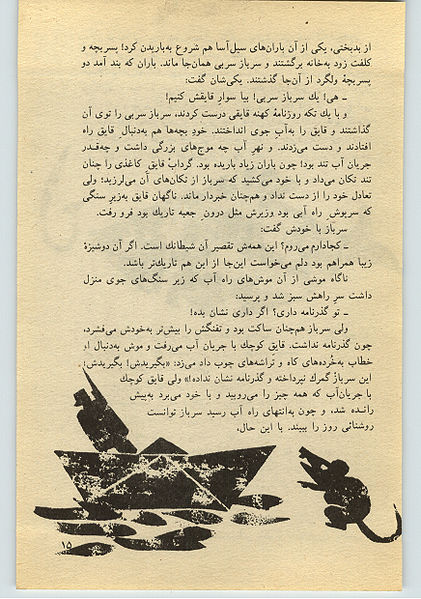 از بدبختی، یکی از آن باران‌های سیل‌آسا هم شروع به‌باریدن کرد! پسربچه و
کلفت زود به‌خانه برگشتند و سرباز سربی همان‌جا ماند. باران که بند آمد دو
پسربچهٔ ولگرد از آن‌جا گذشتند. یکی‌شان گفت:
ــ هی! یك سرباز سربی! بیا سوار قایقش کنیم!
و با یك تکه روزنامهٔ کهنه قایقی درست کردند، سرباز سربی را توی آن
گذاشتند و قایق را به‌آب جوی انداختند. خود بچه‌ها هم به‌دنبال قایق راه
افتادند و دست می‌زدند. و نهر آب چه موج‌های بزرگی داشت و چه‌قدر
جریان آب تند بود! چون باران زیاد باریده بود. گرداب قایق کاغذی را چنان
تند تکان می‌داد و با خود می‌کشید که سرباز از تکان‌های آن می‌لرزید؛ ولی
تعادل خود را از دست نداد و هم‌چنان خبردار ماند. ناگهان قایق به‌زیر سنگی
که سرپوش راه آبی بود وزیرش مثل درون جعبه تاریك بود فرو رفت.
سرباز با خودش گفت:
ــ کجادارم می‌روم؟ این همه‌ش تقصیر آن شیطانك است. اگر آن دوشیزهٔ
زیبا همراهم بود دلم می‌خواست این‌جا از این هم تاریك‌تر باشد.
ناگاه موشی از آن موش‌های راه آب که زیر سنگ‌های جوی منزل
داشت سر راهش سبز شد و پرسید:
ــ تو گذرنامه داری؟ اگر داری نشان بده!
ولی سرباز هم‌چنان ساکت بود و تفنگش را بیش‌تر به‌خودش می‌فشرد،
چون گذرنامه نداشت. قایق کوچك با جریان آب می‌رفت و موش به‌دنبال او،
خطاب به‌خُرده‌های کاه و تَراشه‌های چوب داد می‌زد: «بگیریدش! بگیریدش!
این سرباز گمرك نپرداخته و گذرنامه نشان نداده!» ولی قایق کوچك
با جریان‌آب که همه چیز را می‌روبید و با خود می‌برد به‌پیش
رانـده شد، و چون به‌انتهای راه آب رسید سرباز توانست
روشنائی روز را ببیند. با این حال،
۱۵